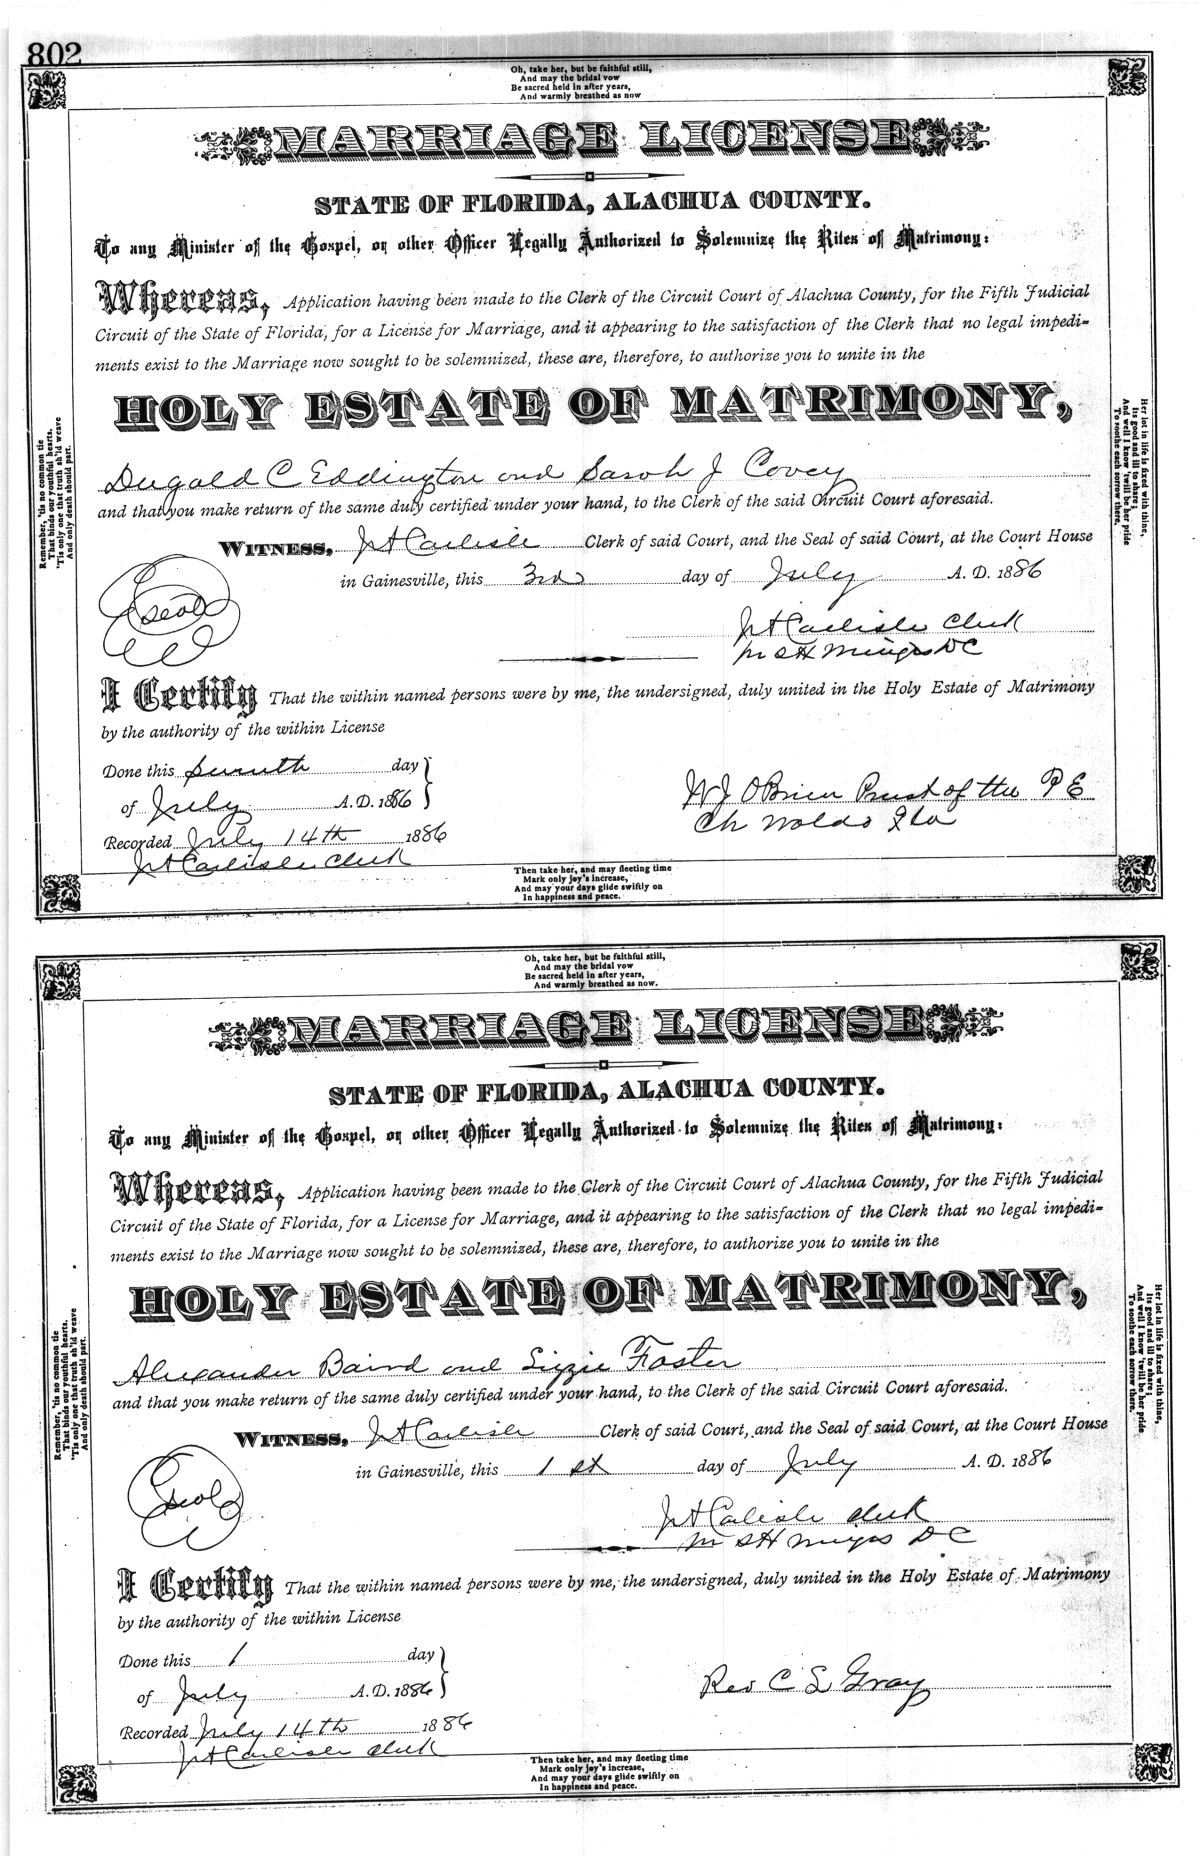 802
Oh, take her, but be faithful still,
And may the bridal vow
Be sacred held in after years,
And warmly breathed as now
MARRIAGE LICENSE
STATE OF FLORIDA, ALACHUA COUNTY.
To any Minister of the Gospel, or other Officer Legally Authorized to Solemnize the Rites of Matrimony:
Whereas, Application having been made to the Clerk of the Circuit Court of Alachua County, for the Fifth Judicial
Circuit of the State of Florida, for a License for Marriage, and it appearing to the satisfaction of the Clerk that no legal impedi=
ments exist to the Marriage now sought to be solemnized, these are, therefore, to authorize you to unite in the
HOLY ESTATE OF MATRIMONY,
Dugald C Eddington and Sarah J Covey
and that you make return of the same duly certified under your hand, to the Clerk of the said Circuit Court aforesaid.
WITNESS, J A Carlisle Clerk of said Court, and the Seal of said Court, at the Court House
in Gainesville, this 3rd day of July A. D. 1886
Seal
J A Carlisle Clerk
DC
I Certify That the within named persons were by me, the undersigned, duly united in the Holy Estate of Matrimony
by the authority of the within License
Done this seventh day
of July A.D. 1886
W J OBrien Priest of the P E
Ch Waldo Fla
Recorded July 14th 1886
J A Carlisle Clerk
Then take her, and may fleeting time
Mark only joy's increase,
And may your days glide swiftly on
In happiness and peace.
Remember, 'tis no common tie
That binds our youthful hearts.
'Tis only one that truth sh'ld weave
And only death should part.
Her lot in life is fixed with thine,
Its good and ill to share;
And well I know 'twill be her pride
To soothe each sorrow there.
Oh, take her, but be faithful still,
And may the bridal vow
Be sacred held in after years,
And warmly breathed as now.
MARRIAGE LICENSE
STATE OF FLORIDA, ALACHUA COUNTY.
To any Minister of the Gospel, or other Officer Legally Authorized to Solemnize the Rites of Matrimony:
Whereas, Application having been made to the Clerk of the Circuit Court of Alachua County, for the Fifth Judicial
Circuit of the State of Florida, for a License for Marriage, and it appearing to the satisfaction of the Clerk that no legal impedi=
ments exist to the Marriage now sought to be solemnized, these are, therefore, to authorize you to unite in the
HOLY ESTATE OF MATRIMONY,
Alexander Baird and Lizzie Foster
and that you make return of the same duly certified under your hand, to the Clerk of the said Circuit Court aforesaid.
WITNESS, J A Carlisle Clerk of said Court, and the Seal of said Court, at the Court House
in Gainesville, this 1st day of July A. D. 1886
Seal
J A Carlisle Clerk
DC
I Certify That the within named persons were by me, the undersigned, duly united in the Holy Estate of Matrimony
by the authority of the within License
Done this 1 day
of July A.D. 1886
Rev C S Gray
Recorded July 14th 1886
J A Carlisle Clerk
Then take her, and may fleeting time
Mark only joy's increase,
And may your days glide swiftly on
In happiness and peace.
Remember, 'tis no common tie
That binds our youthful hearts.
'Tis only one that truth sh'ld weave
And only death should part.
Her lot in life is fixed with thine,
Its good and ill to share;
And well I know 'twill be her pride
To soothe each sorrow there.